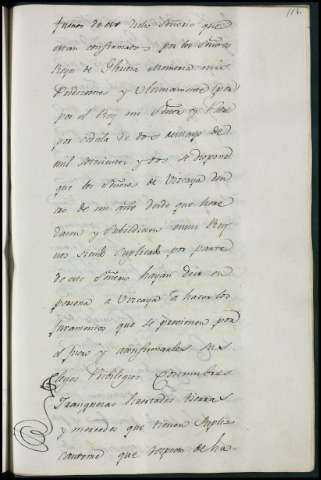 112
fueros de este dicho Señorio que
estan confirmados por los Señores
Reyes de Gloriosa Memoria mis
Predecesores y Ultimamente
por el Rey mi Señor y Padre
por cedula de doze de mayo de
mil setecientos y dos se dispone
que los Señores de Vizcaya den
tro de un año desde que here
daren y subcedieren en mis Rey
nos siendo suplicado por parte
de este Señorio hayan de ir en
persona a Vizcaya a hacer los
Juramentos que se previenen por
el fuero y confirmarles sus
leyes Privilegios Costumbres
franquezas libertades tierras
y mercedes que tienen suplic
andome que despues de ha-